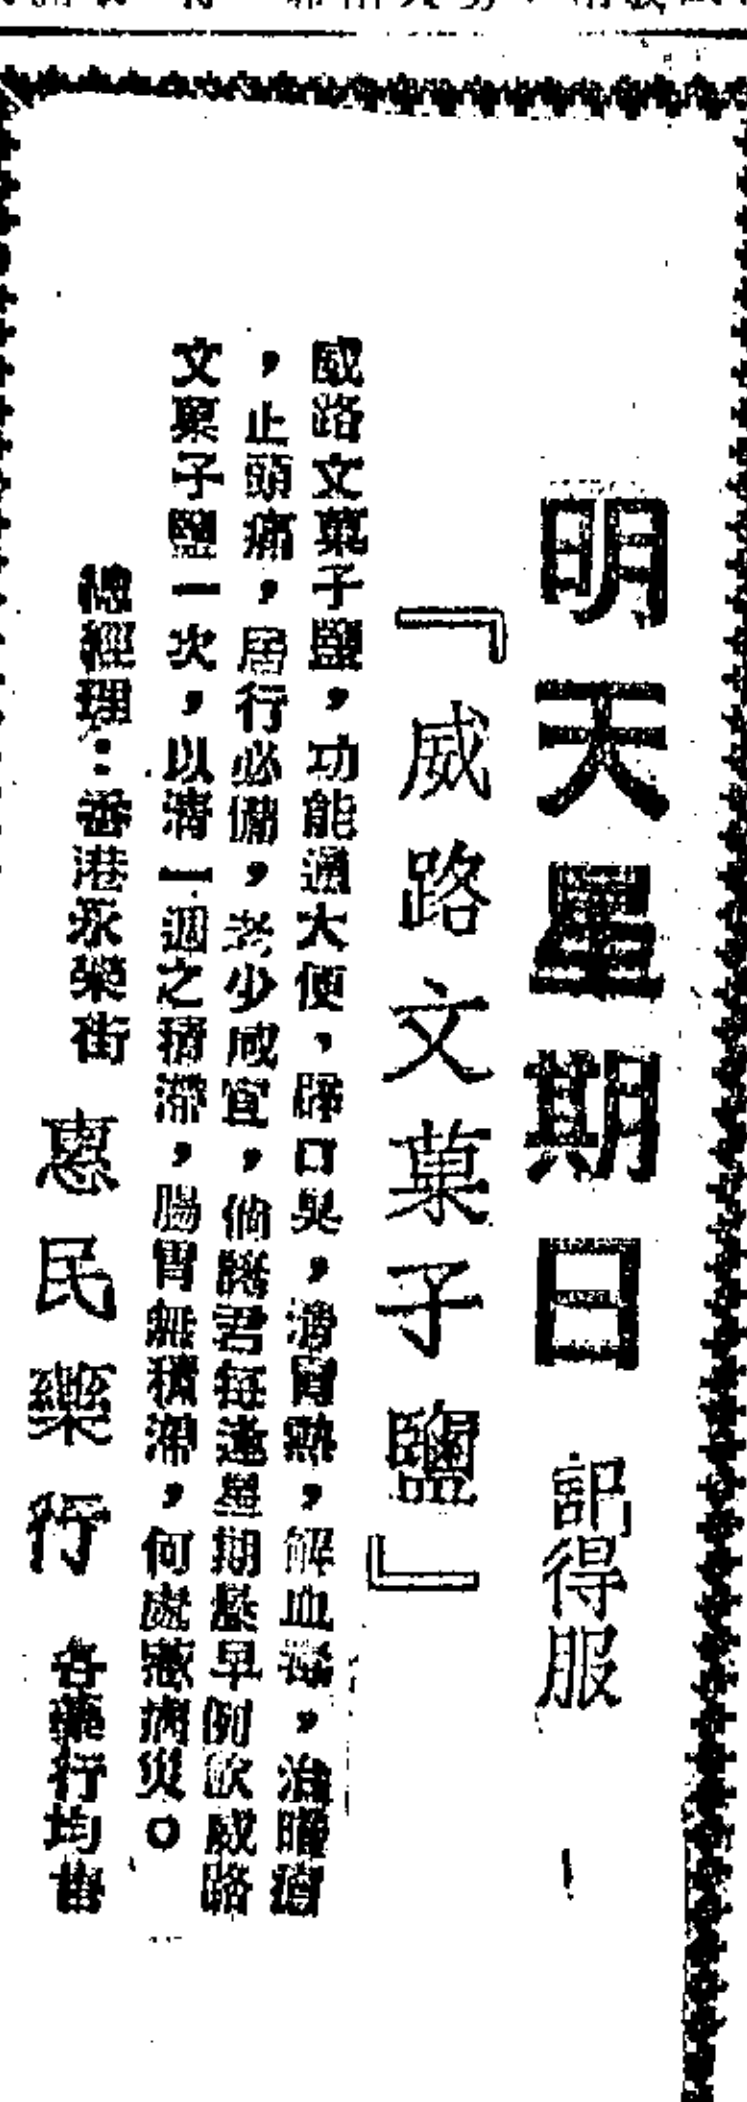 明天星期日 記得服！
『威路文菓子鹽』
威路文菓子鹽，功能通大便，辟口臭，清胃熱，解血毒，治
，止頭痛，居行必備，老少咸宜，倘諸君每逢星期晨早例飲威路
文菓子鹽一次，以清一週之積滯，腸胃無積滯，何處惹病災。
總經理：香港永樂街 惠民藥行 各藥行均售